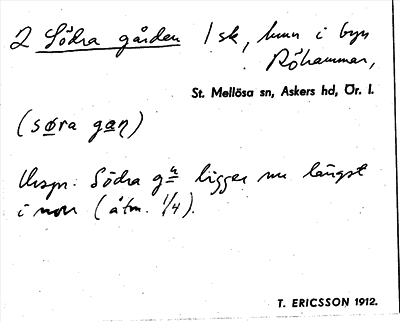 2 Södra gården 1 sk, hmn i byn
Röhammar,
St. Mellösa sn, Askers hd, Ör. l.
(søra gaɳ)
Urspr. Södra g⁠n ligger nu längst
i norr (åtm. 1/4).
T. ERICSSON 1912.